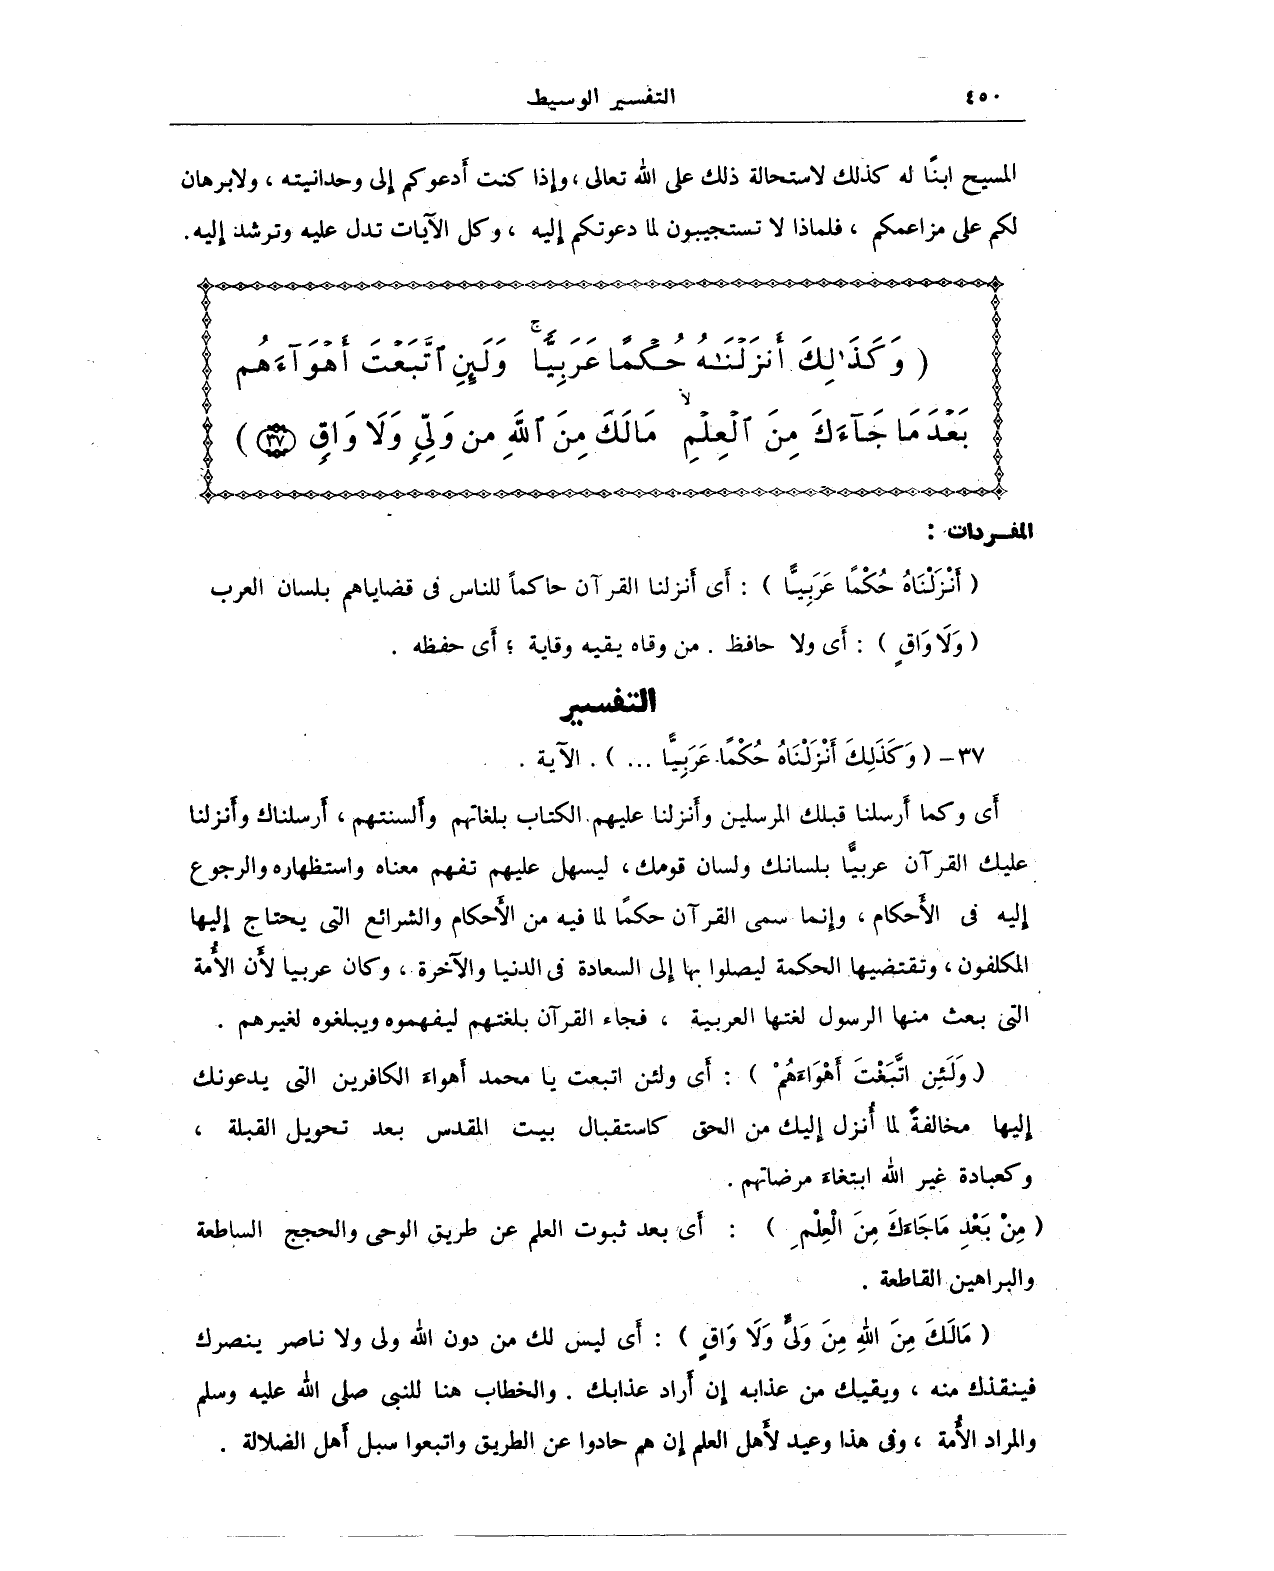 ٤٥٠
التفسير الوسيط
المسيح ابنًا له كذلك لاستحالة ذلك على الله تعالى ، وإذا كنت أدعوكم إلى وحدانيته ، ولابرهان
لكم على مزاعمكم ، فلماذا لا تستجيبون لما دعوتكم إليه ، وكل الآيات تدل عليه وترشد إليه.
( وَكَذَٰلِكَ أَنزَلْنَٰهُ حُكْمًا عَرَبِيًّا ۚ وَلَئِنِ ٱتَّبَعْتَ أَهْوَآءَهُم
بَعْدَ مَا جَآءَكَ مِنَ ٱلْعِلْمِ ۙ مَالَكَ مِنَ ٱللَّهِ مِن وَلِيٍّ وَلَا وَاقٍ ٣٧ )
المفـردات :
( أَنْزَلْنَاهُ حُكْمًا عَرَبِيًّا ) : أى أنزلنا القرآن حاكماً للناس فى قضاياهم بلسان العرب
( وَلَا وَاقٍ ) : أى ولا حافظ . من وقاه يقيه وقاية ؛ أى حفظه .
التفسير
٣٧- ( وَكَذَلِكَ أَنْزَلْنَاهُ حُكْمًا عَرَبِيًّا ... ) . الآية .
أى وكما أرسلنا قبلك المرسلين وأنزلنا عليهم الكتاب بلغاتهم وألسنتهم ، أرسلناك وأنزلنا
عليك القرآن عربيًّا بلسانك ولسان قومك ، ليسهل عليهم تفهم معناه واستظهاره والرجوع
إليه فى الأحكام ، وإنما سمى القرآن حكمًا لما فيه من الأحكام والشرائع التى يحتاج إليها
المكلفون ، وتقتضيها الحكمة ليصلوا بها إلى السعادة فى الدنيا والآخرة ، وكان عربيا لأن الأُمة
التى بعث منها الرسول لغتها العربية ، فجاء القرآن بلغتهم ليفهموه ويبلغوه لغيرهم .
( وَلَئِن اتَّبَعْتَ أَهْوَاءَهُمْ ) : أى ولئن اتبعت يا محمد أهواء الكافرين التى يدعونك
إليها مخالفةً لما أُنزل إليك من الحق كاستقبال بيت المقدس بعد تحويل القبلة ،
وكعبادة غير الله ابتغاء مرضاتهم .
( مِنْ بَعْدِ مَاجَاءَكَ مِنَ الْعِلْمِ ) : أى بعد ثبوت العلم عن طريق الوحى والحجج الساطعة
والبراهين القاطعة .
( مَالَكَ مِنَ اللهِ مِنَ وَلِىٍّ وَلَا وَاقٍ ) : أى ليس لك من دون الله ولى ولا ناصر ينصرك
فينقذك منه ، ويقيك من عذابه إن أراد عذابك . والخطاب هنا للنبى صلى الله عليه وسلم
والمراد الأُمة ، وفى هذا وعيد لأهل العلم إن هم حادوا عن الطريق واتبعوا سبل أهل الضلالة .